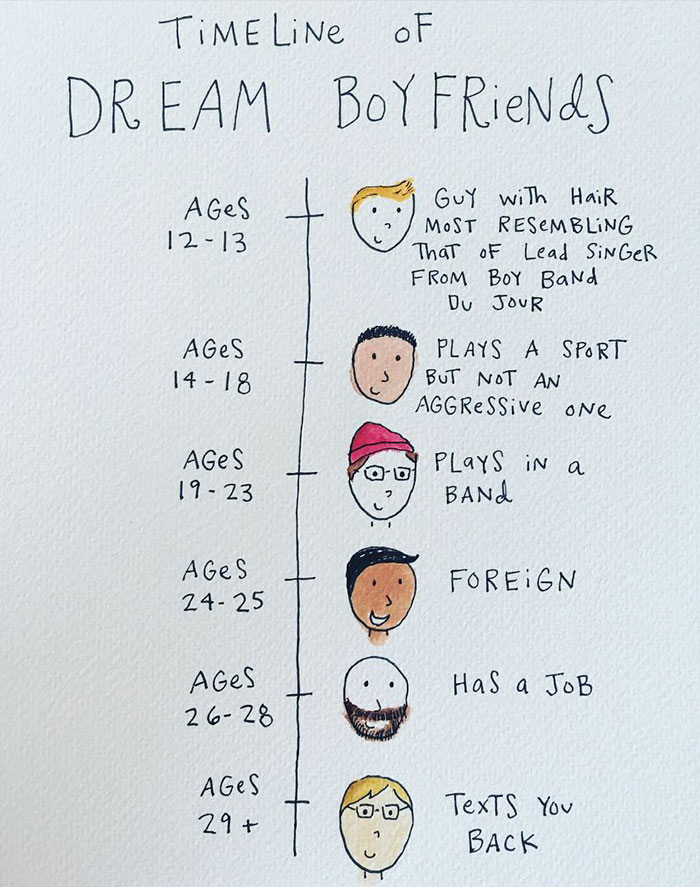 TiMELiNe OF
DREAM BoYFRieNdS
AGeS
12-13
GUY WiTH HaiR
MoST RESeMBLiNG
THaT oF Lead SiNGeR
FROM BoY BaNd
DU JOUR
AGeS
14-18
PLAYS A SPoRT
BUT NoT AN
AGGReSSiVe oNe
AGeS
19-23
PLaYS iN a
BANd
AGeS
24-25
FOREiGN
AGeS
26-28
HaS a JoB
AGeS
29+
TexTS You
BACK